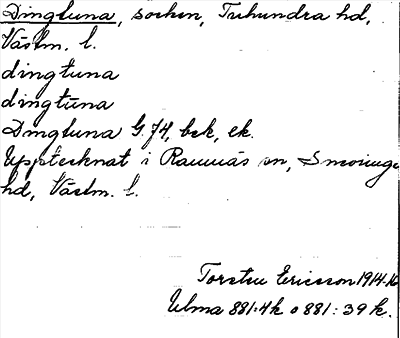 Dingtuna, socken, Tuhundra hd,
Västm. l.
dingtuna
dingtūna
Dingtuna G.74, bek, ek.
Upptecknat i Ramnäs sn, Snevringe
hd, Västm. l.
Torsten Ericsson 1914-16
Ulma 881:4k o 881:39 k.